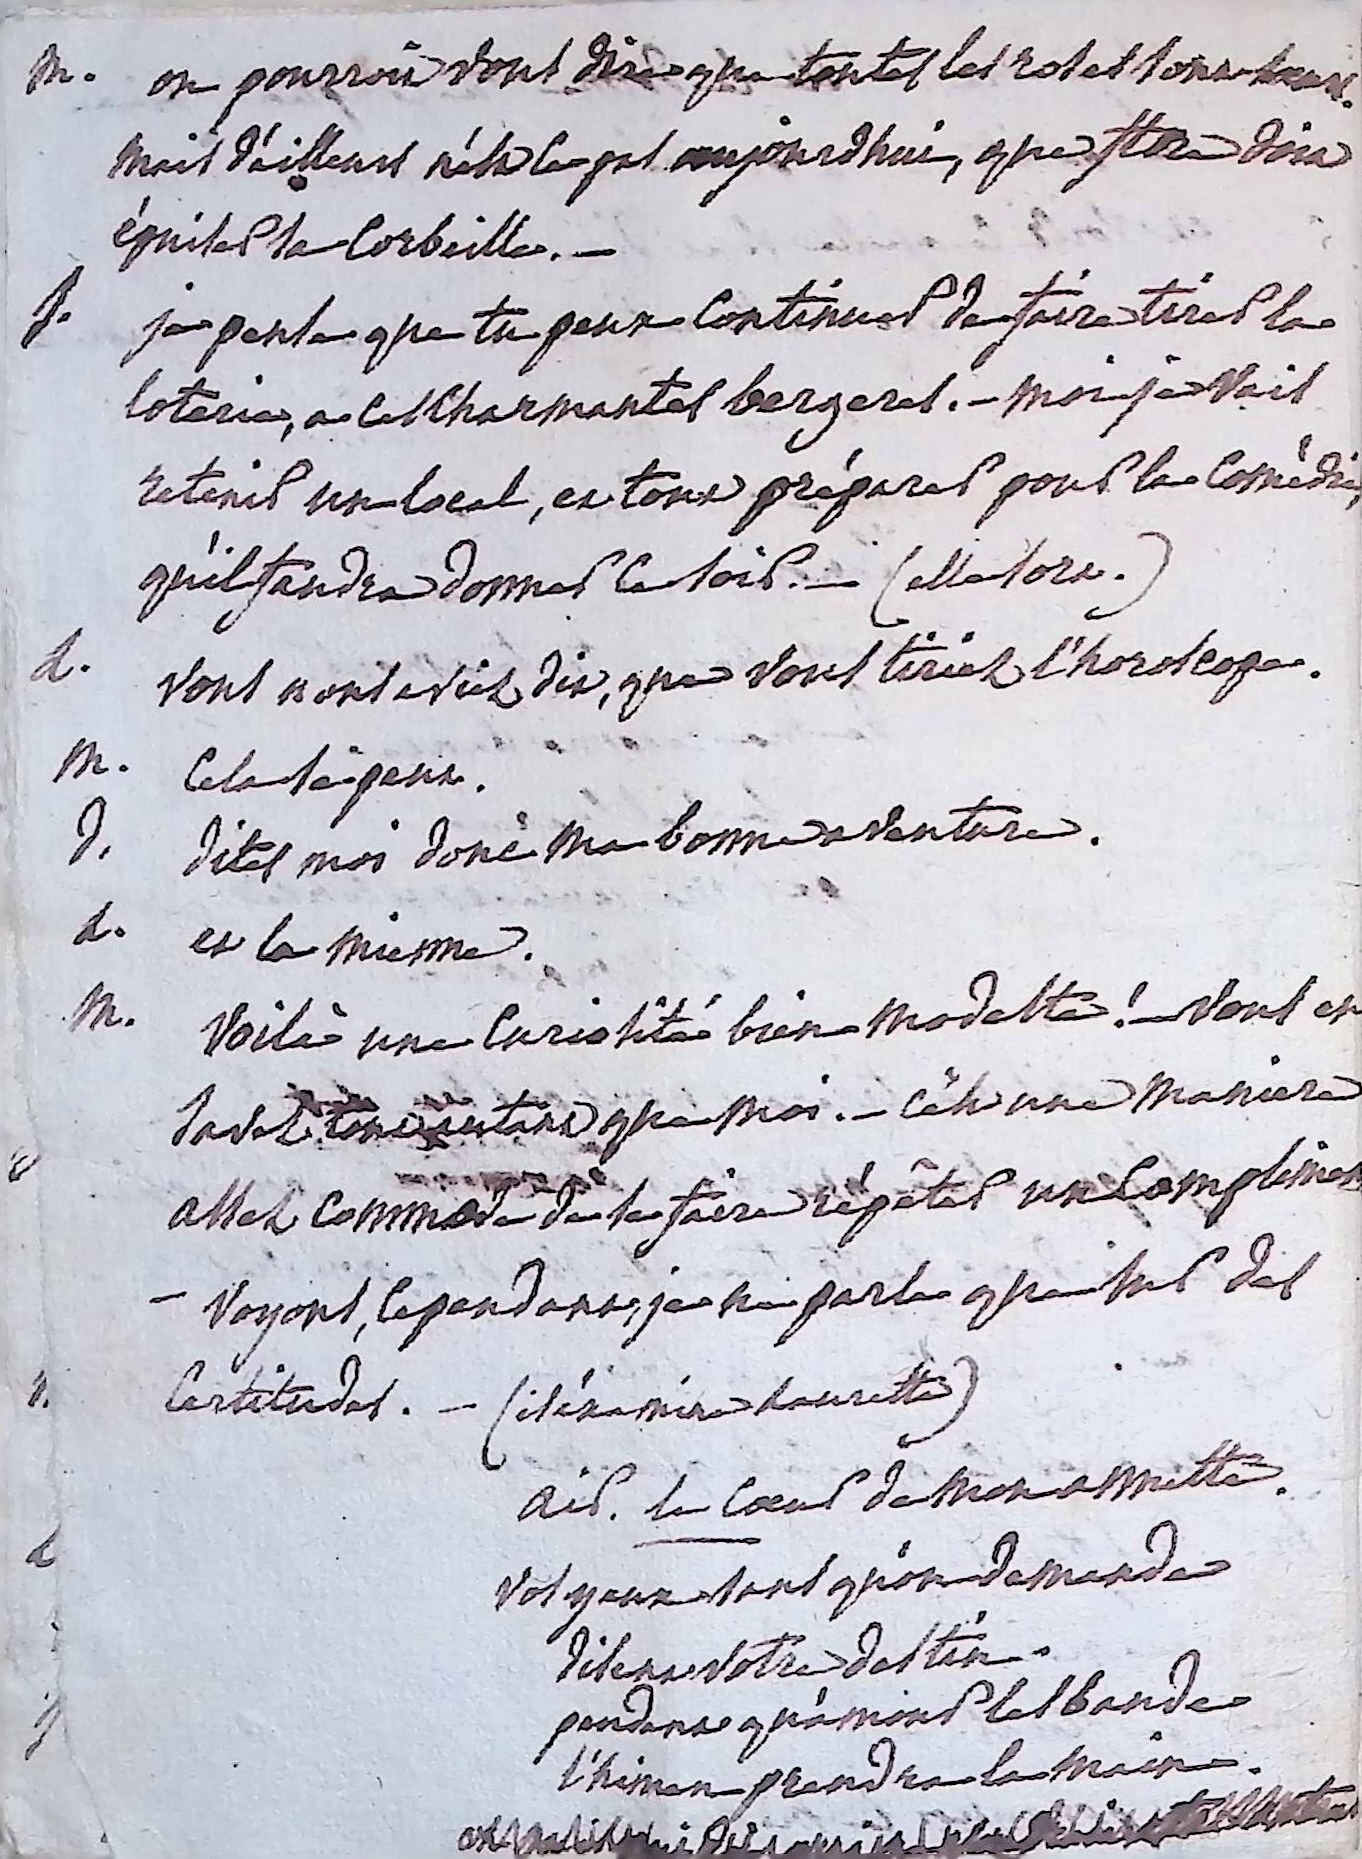 m. on pourroit vous dire que toutes les roses sont sœurs.
mais d'ailleurs n'est ce pas aujourdhui, que flore doit
épuiser sa corbeille. —
f. je pense que tu peux continuer de faire tirer la
loterie, a ces charmantes bergeres. — moi je vais
retenir un local, et tout préparer pour la comédie,
qu'il faudra donner ce soir. — (elle sort.)
L. vous nous aviez dit, que vous tiriez l'horoscope.
m. cela se peut.
d. dites moi donc ma bonne aventure.
L. et la mienne.
m. Voilà une curiosité bien modeste! — vous en
savez tout autant que moi. — c'est une maniere
assez commode de se faire répéter un compliment
— voyons, cependant, je ne parle que sur des
certitudes. — (il éxamine Laurette)
air. le cœur de mon annette.
vos yeux sans qu'on demande
disent votre destin.
pendant qu'amour les bande
l'himen prendra la main.